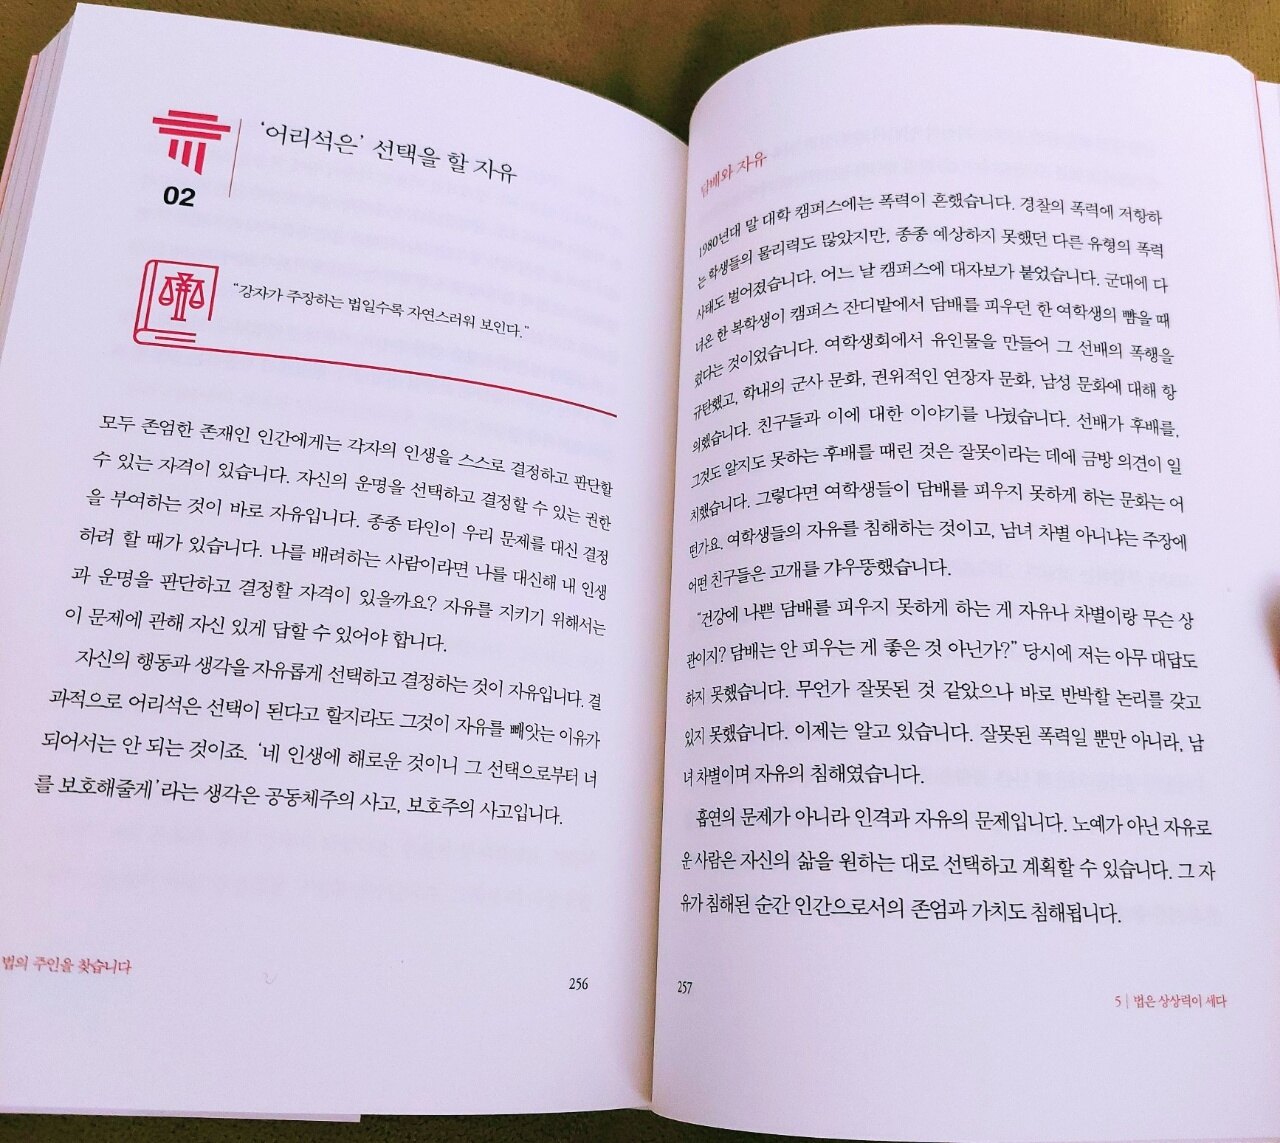 02
‘어리석은’ 선택을 할 자유
“강자가 주장하는 법일수록 자연스러워 보인다.”
모두 존엄한 존재인 인간에게는 각자의 인생을 스스로 결정하고 판단할
수 있는 자격이 있습니다. 자신의 운명을 선택하고 결정할 수 있는 권한
을 부여하는 것이 바로 자유입니다. 종종 타인이 우리 문제를 대신 결정
하려 할 때가 있습니다. 나를 배려하는 사람이라면 나를 대신해 내 인생
과 운명을 판단하고 결정할 자격이 있을까요? 자유를 지키기 위해서는
이 문제에 관해 자신 있게 답할 수 있어야 합니다.
자신의 행동과 생각을 자유롭게 선택하고 결정하는 것이 자유입니다. 결
과적으로 어리석은 선택이 된다고 할지라도 그것이 자유를 빼앗는 이유가
되어서는 안 되는 것이죠. ‘네 인생에 해로운 것이니 그 선택으로부터 너
를 보호해줄게’라는 생각은 공동체주의 사고, 보호주의 사고입니다.
법의 주인을 찾습니다
256
담배와 자유
1980년대 말 대학 캠퍼스에는 폭력이 흔했습니다. 경찰의 폭력에 저항하
는 학생들의 물리력도 많았지만, 종종 예상하지 못했던 다른 유형의 폭력
사태도 벌어졌습니다. 어느 날 캠퍼스에 대자보가 붙었습니다. 군대에 다
녀온 한 복학생이 캠퍼스 잔디밭에서 담배를 피우던 한 여학생의 뺨을 때
렸다는 것이었습니다. 여학생회에서 유인물을 만들어 그 선배의 폭행을
규탄했고, 학내의 군사 문화, 권위적인 연장자 문화, 남성 문화에 대해 항
의했습니다. 친구들과 이에 대한 이야기를 나눴습니다. 선배가 후배를,
그것도 알지도 못하는 후배를 때린 것은 잘못이라는 데에 금방 의견이 일
치했습니다. 그렇다면 여학생들이 담배를 피우지 못하게 하는 문화는 어
떤가요. 여학생들의 자유를 침해하는 것이고, 남녀 차별 아니냐는 주장에
어떤 친구들은 고개를 갸우뚱했습니다.
“건강에 나쁜 담배를 피우지 못하게 하는 게 자유나 차별이랑 무슨 상
관이지? 담배는 안 피우는 게 좋은 것 아닌가?” 당시에 저는 아무 대답도
하지 못했습니다. 무언가 잘못된 것 같았으나 바로 반박할 논리를 갖고
있지 못했습니다. 이제는 알고 있습니다. 잘못된 폭력일 뿐만 아니라, 남
녀 차별이며 자유의 침해였습니다.
흡연의 문제가 아니라 인격과 자유의 문제입니다. 노예가 아닌 자유로
운 사람은 자신의 삶을 원하는 대로 선택하고 계획할 수 있습니다. 그 자
유가 침해된 순간 인간으로서의 존엄과 가치도 침해됩니다.
257
5 | 법은 상상력이 세다